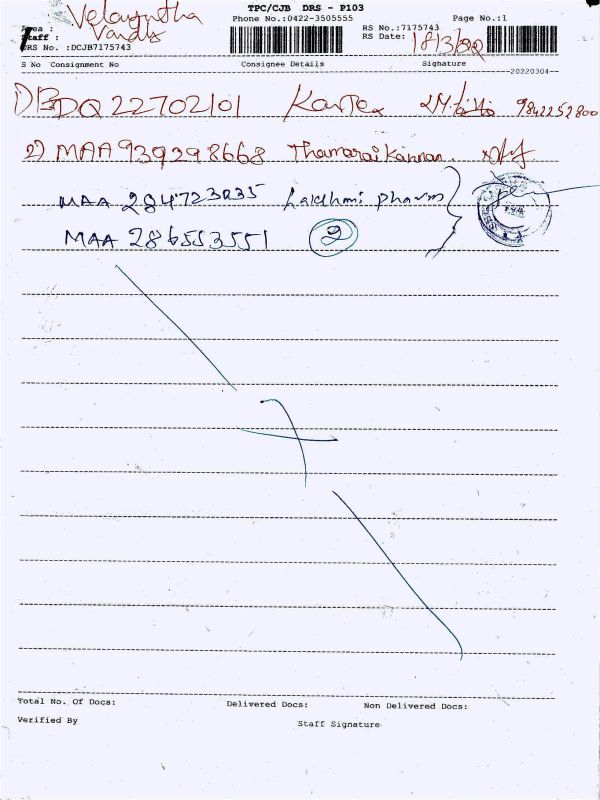 TPC/CJB DRS - P103
Velayutha
Phone No.:0422-3505555
Page No.:1
Area :
RS No.:7175743
Staff :
RS Date: 18/3/22
DRS No. :DCJB7175743
S No Consignment No Consignee Details Signature
20220304
DQ22702101 9842252800
2) MAA 939298668 Thamarai Kannan
MAA 284723035 Lakshmi pharm
MAA 286553551 2
Total No. Of Docs: Delivered Docs: Non Delivered Docs:
Verified By Staff Signature